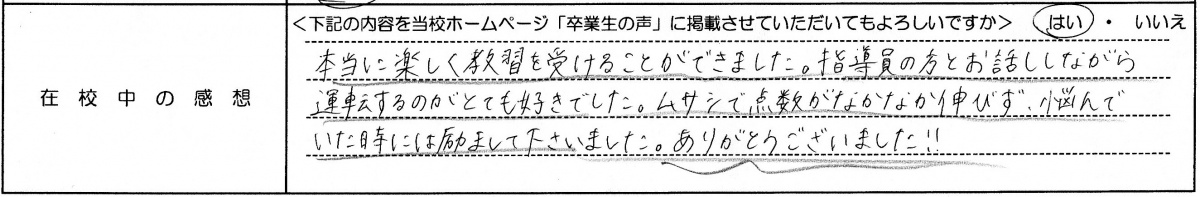 ＜下記の内容を当校ホームページ「卒業生の声」に掲載させていただいてもよろしいですか＞ はい ・ いいえ
在校中の感想
本当に楽しく教習を受けることができました。指導員の方とお話ししながら
運転するのがとても好きでした。ムサシで点数がなかなか伸びず、悩んで
いた時には励まして下さいました。ありがとうございました!!